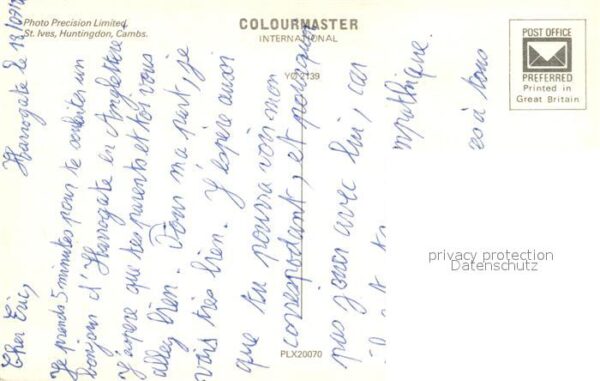 Photo Precision Limited,
St. Ives, Huntingdon, Cambs.
COLOURMASTER
INTERNATIONAL
YO 2139
PLX20070
POST OFFICE
PREFERRED
Printed in
Great Britain
privacy protection
Datenschutz
Harrogate le
Cher Eric,
Je prends 5 minutes pour te souhaiter un
bonjour d'Harrogate en Angleterre
J'espère que tes parents et toi vous
allez bien. Pour ma part, je
vais très bien. J'espère aussi
que tu pourra voir mon
correspondant, et pourquoi
pas jouer avec lui, car
mpathique.
es à tous